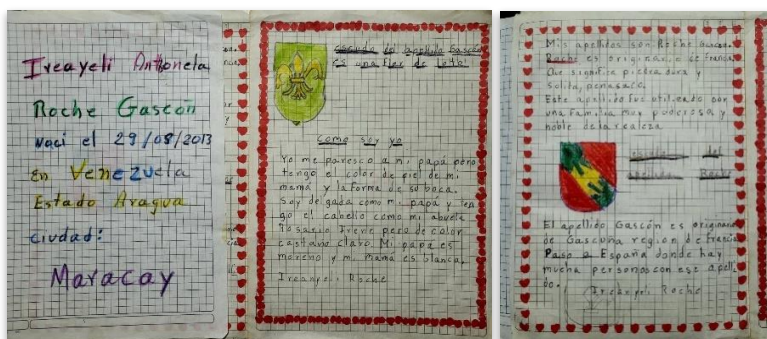 Ireayeli Anttoneta
Roche Gascón
Naci el 29/08/2013
En Venezuela
Estado Aragua
ciudad:
Maracay
escudo de apellido Gascón
es una Flor de loto
Como soy yo
Yo me paresco a mi papá pero
tengo el color de piel de mi
mamá y la forma de su boca.
Soy delgada como mi papá y ten
go el cabello como mi abuela
Rosario Irene pero de color
castaño claro. Mi papá es
moreno y mi mamá es blanca.
Roche
Mis apellidos son Roche Gascon.
Roche es originario de francia
Que significa piedra dura y
solida, penasaco.
Este apellido fue utilizado por
una familia muy poderosa y
noble de la realeza
escudo del
apellido Roche
El apellido Gascón es originario
de Gascuña region de francia
Paso a España donde hay
mucha personas con ese apelli
do.
Roche